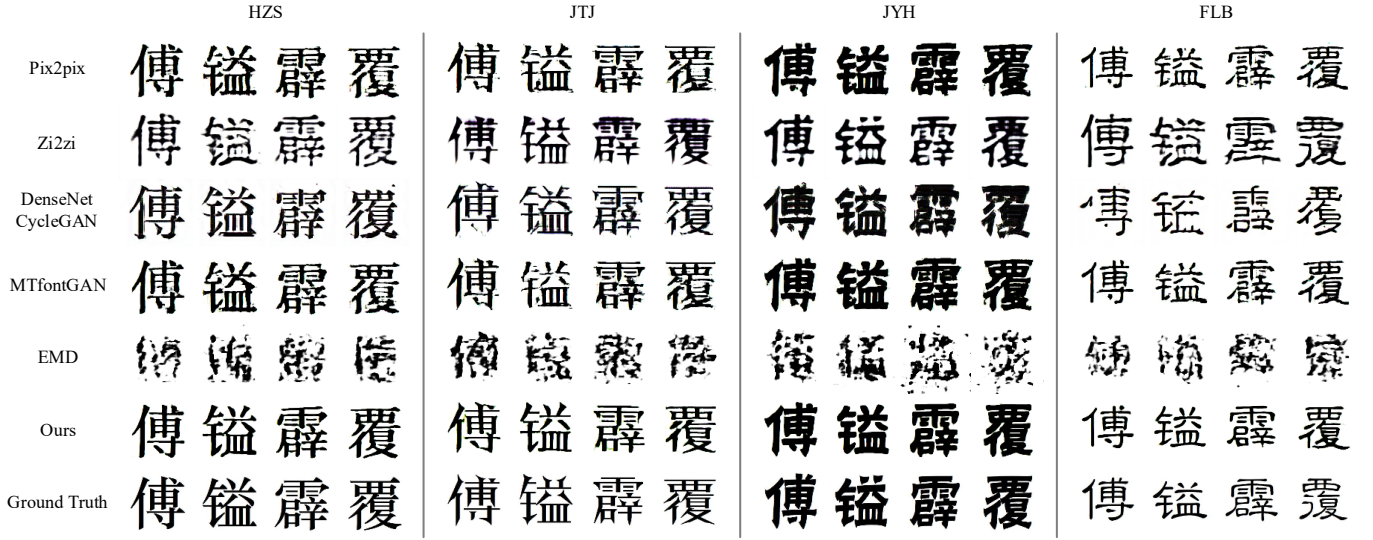 HZS JTJ JYH FLB
Pix2pix 傅 镒 霹 覆 傅 镒 霹 覆 傅 镒 霹 覆 傅 镒 霹 覆
Zi2zi 傅 镒 霹 覆 傅 镒 霹 覆 傅 镒 霹 覆 傅 镒 霹 覆
DenseNet
CycleGAN 傅 镒 霹 覆 傅 镒 霹 覆 傅 镒 霹 覆
MTfontGAN 傅 镒 霹 覆 傅 镒 霹 覆 傅 镒 霹 覆 傅 镒 霹 覆
EMD
Ours 傅 镒 霹 覆 傅 镒 霹 覆 傅 镒 霹 覆 傅 镒 霹 覆
Ground Truth 傅 镒 霹 覆 傅 镒 霹 覆 傅 镒 霹 覆 傅 镒 霹 覆